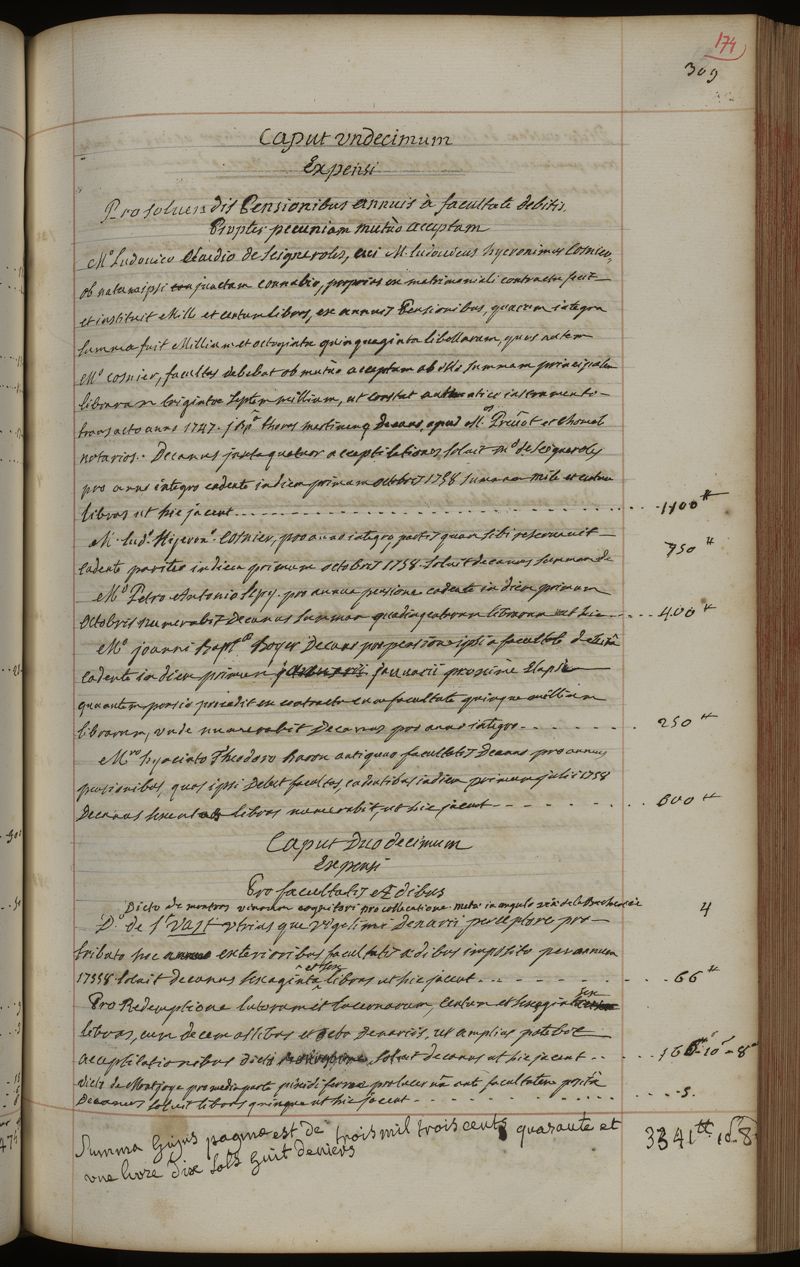 174
309
Caput undecimum
Expensi
Pro solvendis Pensionibus annuis à facultate debitis,
Propter pecuniam mutuo acceptam
Mo Ludovico Claudio de Seigneroles, cui M. Ludovicus hyeronimus Cosnier,
ob natam ipsi conjunctam connubio, proprios ex matrimoniali contractu fecit
et instituit mille et centum libros, ex annuis Pensionibus, quarum integra
summa fuit Millium et octoginta quinquaginta libellarum, quos autem
Mo Cosnier, facultas debebat ob mutuo acceptam ab illo summam principalem
librarum triginta septem millium, ut constat authentico instrumento
transacto anno 1747. thoma martinenq decano, apud Mos Prevot et
notarios. Decanus juxta quatuor acceptilationes soluit mo de Seigneroles
pro anno integro cadente in diem primam octobris 1758 summam mille et centum
libras ut hic jacent 1100 ₶
M. Lud. Hyeron. Cosnier, pro anno integro, partis quam sibi reservavit
cadente pariter in diem primam octobris 1758. soluit decanus summam de 750 ₶
Mo Petro Antonio Lepy. pro annua pensione cadente in diem primam
Octobris numerabit Decanus summam quadringentarum librarum ut hic 400 ₶
Mo joanni Bapt. Boyer Decano pro pensione ipsi a facultate debita
cadente in diem primam januarii proxime Elapsi
quae autem pensio procedit ex contracto cum facultate quinque millium
librarum, unde numerabit Decanus pro anno integro 250 ₶
Mro hyacinto Theodoro Baron antiquo facultatis Decano pro annuis
pensionibus, quas ipsi debet facultas, cadentibus in diem primam julii 1758
Decanus sexcentas libras numerabit, ut hic jacent 600 ₶
Caput Duodecimum
Expensi
Pro facultatis Ædibus
Dicto de montros vicorum cognitori pro collectione in angulo viæ de la Bucherie 4
D. de St Vast utriusque vigesimi Denarii perceptore pro
tributo hoc exterioribus facultatis ædibus imposito per annum
17558. soluit decanus sexaginta et sex libras ut hic jacent 66 ₶
Pro Redemptione lutorum et lucernarum, Centum et sexaginta sex
libras, cum decem assibus et octo Denariis, ut amplius patebit
acceptilationibus dicti soluit decanus ut hic jacent 166 ₶ 10 s 8 d
Dicto de Montjoye pro media parte pro luce una ante facultatem posita
Decanus soluit libras quinque ut hic jacent 5.
Summa hujus paginæ est de trois mil trois cents quarante et
une livre dix sols huit deniers 3341 ₶ 10 s 8 d